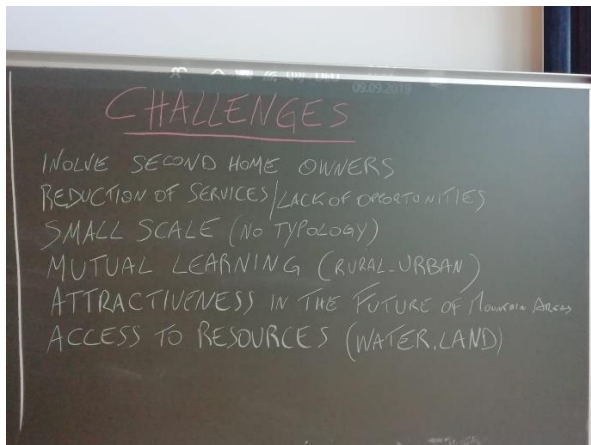 09.09.2019
CHALLENGES
INOLVE SECOND HOME OWNERS
REDUCTION OF SERVICES/LACK OF OPORTUNITIES
SMALL SCALE (NO TYPOLOGY)
MUTUAL LEARNING (RURAL-URBAN)
ATTRACTIVENESS IN THE FUTURE OF MOUNTAIN AREAS
ACCESS TO RESOURCES (WATER, LAND)